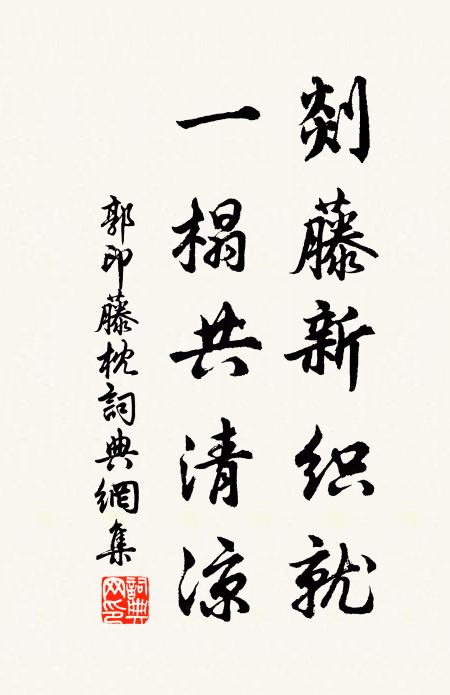 剡藤新织就
一榻共清凉
郭印藤枕詞典網集
詞典網印